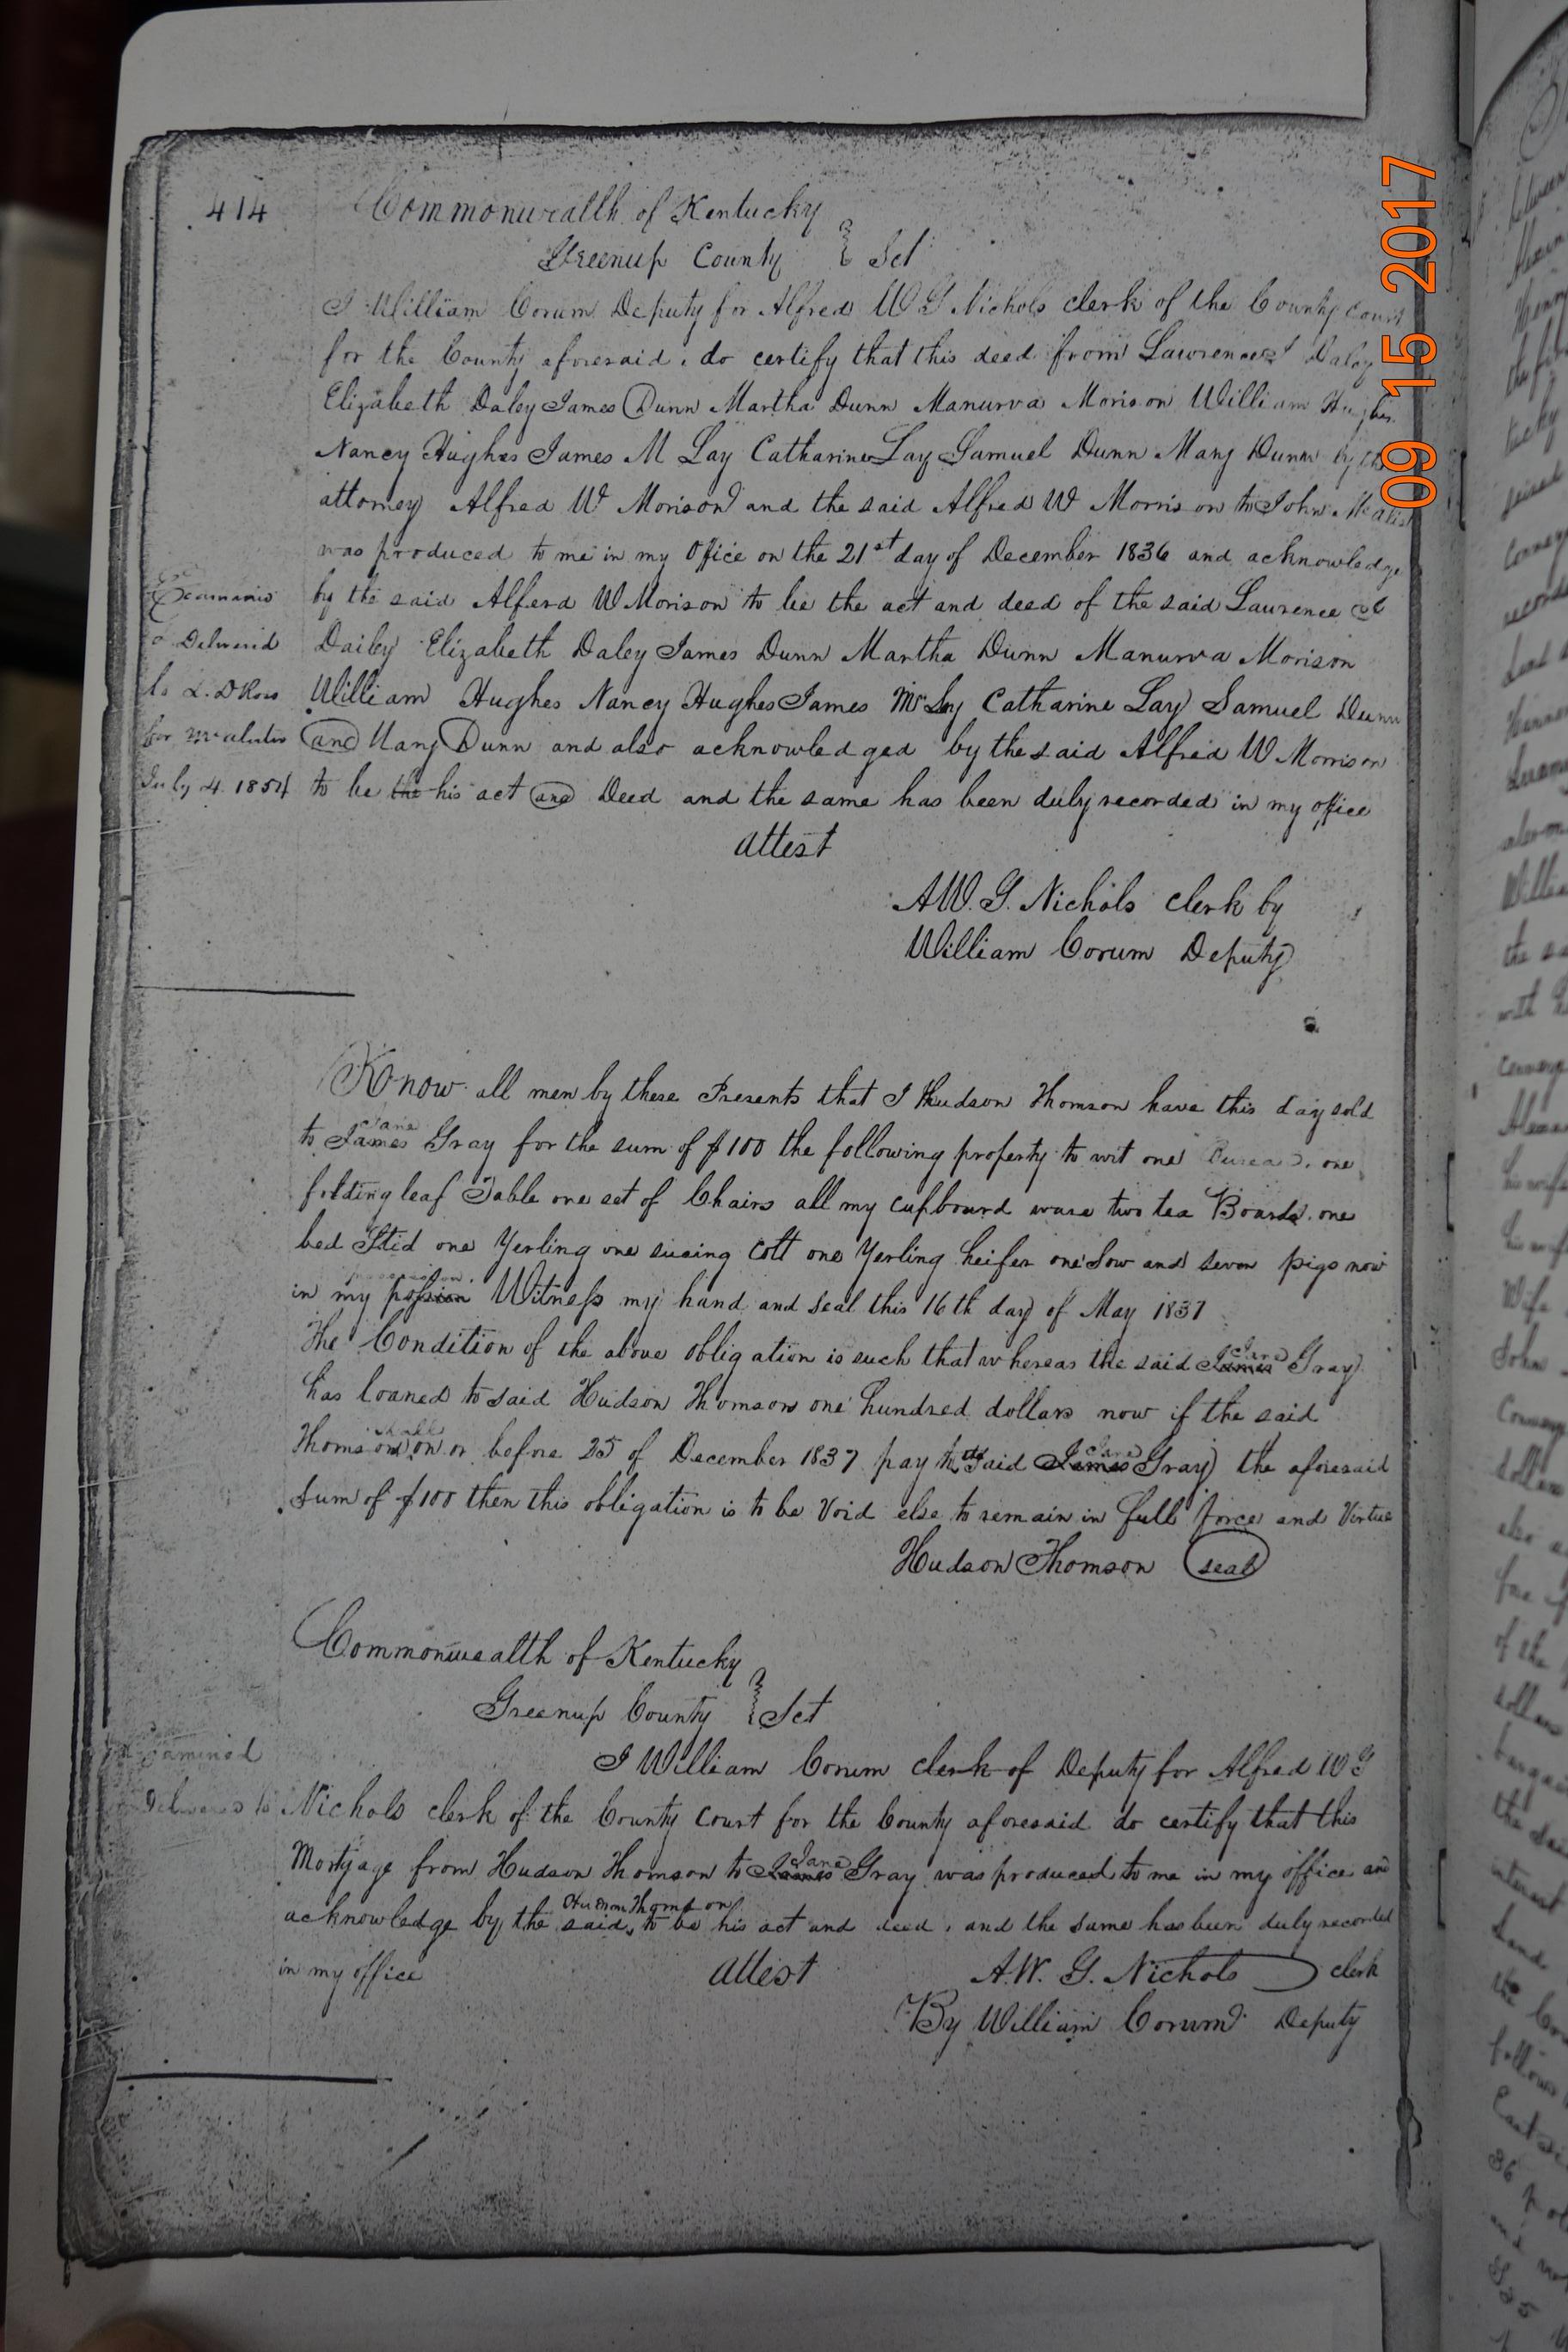 414
Commonwealth of Kentucky
Greenup County } Sct
I William Corum Deputy for Alfred W G Nichols clerk of the County Court
for the County aforesaid. do certify that this deed from Lawrence Daley
Elizabeth Daley James Dunn Martha Dunn Manurva Morison William Hughes
Nancy Hughes James M Lay Catharine Lay Samuel Dunn Mary Dunn by
attorney Alfred W Morison and the said Alfred W Morrison to John
was produced to me in my Office on the 21st day of December 1836 and acknowledge
by the said Alferd W Morison to be the act and deed of the said Laurence
Dailey Elizabeth Daley James Dunn Martha Dunn Manurva Morison
William Hughes Nancy Hughes James Mc Loy Catharine Lay Samuel Dunn
and Mary Dunn and also acknowledged by the said Alfred W Morrison
to be the his act and Deed and the same has been duly recorded in my office
attest
A.W. G. Nichols clerk by
William Corum Deputy
Delivered
to L. D Ross
for
July 4 1854
Know all men by these Presents that I Hudson Thomson have this day sold
to James Jane Gray for the sum of $100 the following property to wit one Bureau. one
folding leaf Table one set of Chairs all my cupbourd ware two tea Boards. one
bed Stid one Yerling one sucing Colt one Yerling heifer one Sow and seven pigs now
in my possion possession. Witness my hand and seal this 16th day of May 1837
The Condition of the above obligation is such that whereas the said James Jane Gray
has loaned to said Hudson Thomson one hundred dollars now if the said
Thomson shall on or before 25 of December 1837 pay to the said James Jane Gray the aforesaid
sum of $100 then this obligation is to be Void else to remain in full force and Virtue
Hudson Thomson seal
Commonwealth of Kentucky
Greenup County } Sct
I William Corum clerk of Deputy for Alfred W G
Nichols clerk of the County Court for the County aforesaid do certify that this
Mortgage from Hudson Thomson to James Jane Gray was produced to me in my office and
acknowledge by the said Hudson Thomson to be his act and deed, and the same has been duly recorded
in my office attest A.W. G. Nichols clerk
By William Corum Deputy
Examined
Delivered to
09 15 2017